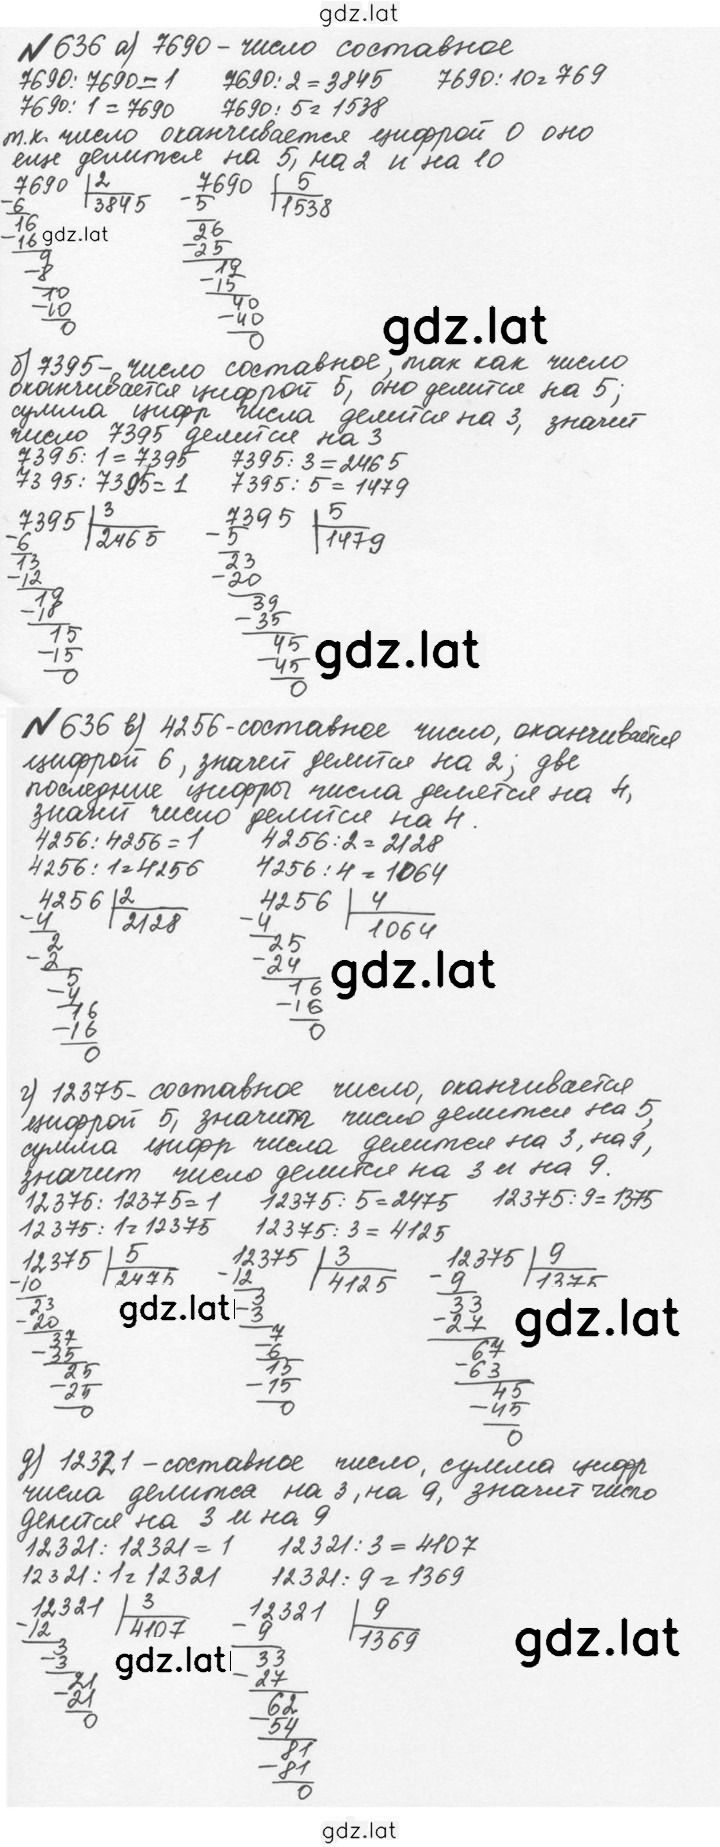 gdz.lat
№ 636 а) 7690 - число составное
7690 : 7690 = 1 7690 : 2 = 3845 7690 : 10 = 769
7690 : 1 = 7690 7690 : 5 = 1538
т.к. число оканчивается цифрой 0 оно
еще делится на 5, на 2 и на 10
7690 2 7690 5
-6 3845 -5 1538
16 26
-16 gdz.lat -25
9 19
-8 -15
10 40
-10 -40
0 0
gdz.lat
б) 7395 - число составное, так как число
оканчивается цифрой 5, оно делится на 5;
сумма цифр числа делится на 3, значит
число 7395 делится на 3
7395 : 1 = 7395 7395 : 3 = 2465
7395 : 7395 = 1 7395 : 5 = 1479
7395 3 7395 5
-6 2465 -5 1479
13 23
-12 -20
19 39
-18 -35
15 45
-15 -45
0 0
gdz.lat
№ 636 в) 4256 - составное число, оканчивается
цифрой 6, значит делится на 2; две
последние цифры числа делятся на 4,
значит число делится на 4.
4256 : 4256 = 1 4256 : 2 = 2128
4256 : 1 = 4256 4256 : 4 = 1064
4256 2 4256 4
-4 2128 -4 1064
2 25
-2 -24
5 16
-4 -16
16 0
-16
0
gdz.lat
г) 12375 - составное число, оканчивается
цифрой 5, значит число делится на 5,
сумма цифр числа делится на 3, на 9,
значит число делится на 3 и на 9.
12375 : 12375 = 1 12375 : 5 = 2475 12375 : 9 = 1375
12375 : 1 = 12375 12375 : 3 = 4125
12375 5 12375 3 12375 9
-10 2475 -12 4125 -9 1375
23 3 33
-20 -3 -27
37 7 67
-35 -6 -63
25 15 45
-25 -15 -45
0 0 0
gdz.lat gdz.lat
д) 12321 - составное число, сумма цифр
числа делится на 3, на 9, значит число
делится на 3 и на 9
12321 : 12321 = 1 12321 : 3 = 4107
12321 : 1 = 12321 12321 : 9 = 1369
12321 3 12321 9
-12 4107 -9 1369
3 33
-3 -27
21 62
-21 -54
0 81
-81
0
gdz.lat gdz.lat
gdz.lat